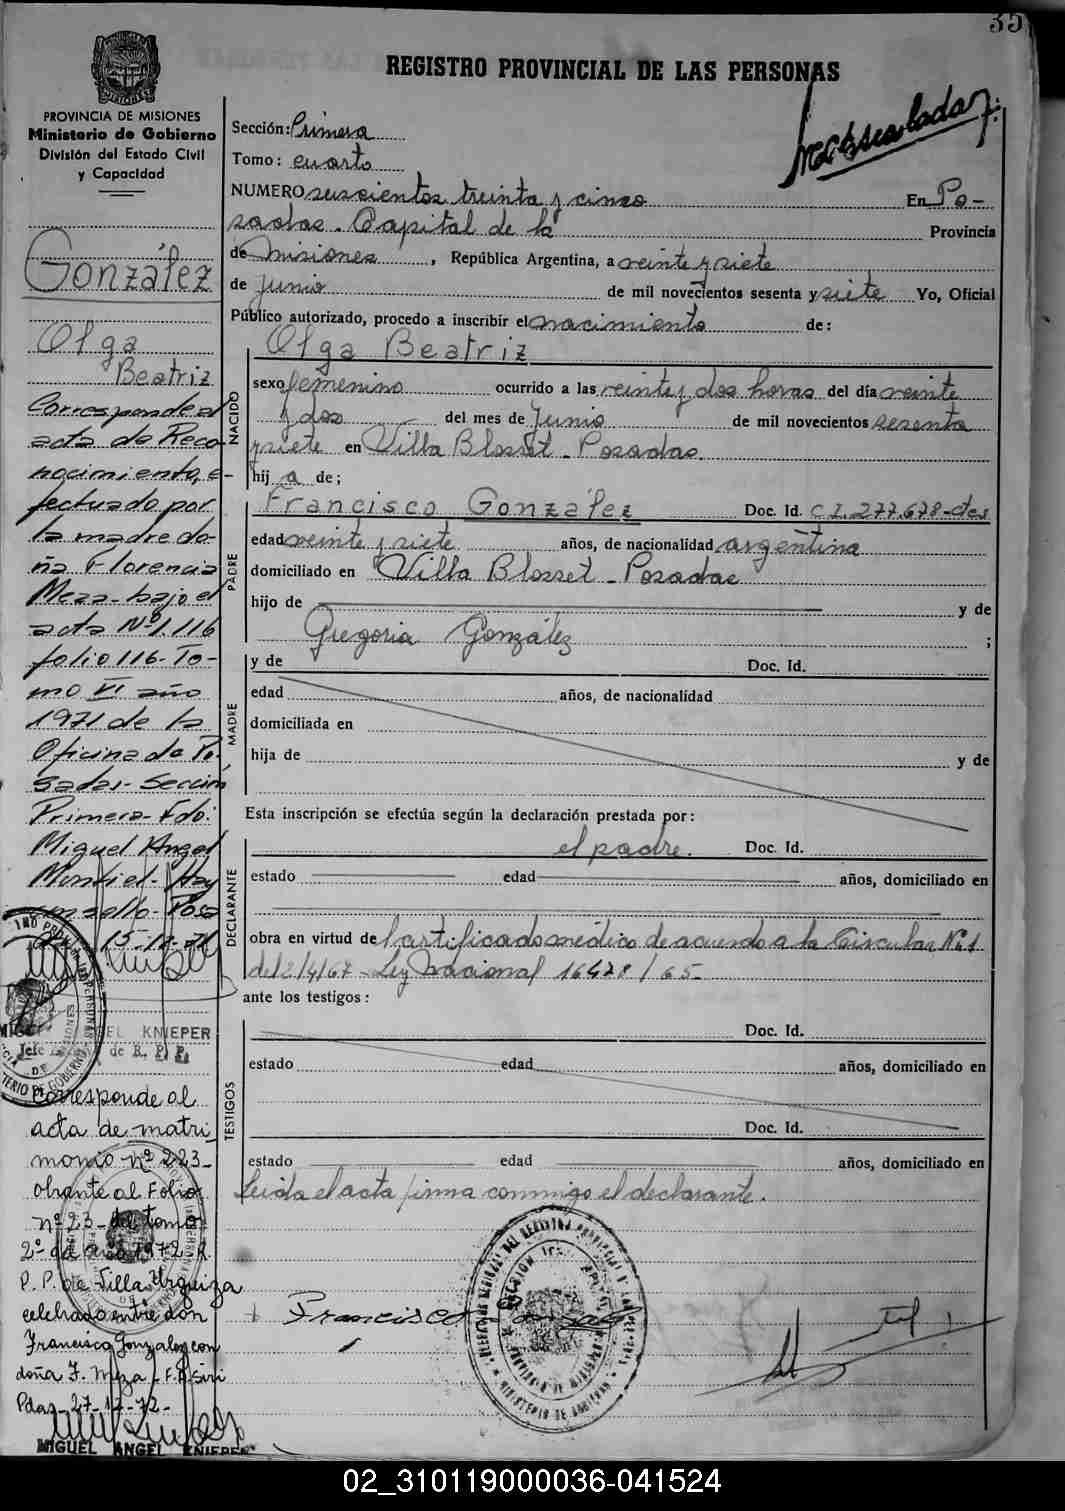 35
REGISTRO PROVINCIAL DE LAS PERSONAS
PROVINCIA DE MISIONES
Ministerio de Gobierno
División del Estado Civil
y Capacidad
Sección: Primera
Tomo: cuarto
NUMERO seiscientos treinta y cinco En Po-
sadas. Capital de la Provincia
de Misiones, República Argentina, a veinte y siete
de Junio de mil novecientos sesenta y siete Yo, Oficial
Público autorizado, procedo a inscribir el nacimiento de:
NACIDO
Olga Beatriz
sexo femenino ocurrido a las veinte y dos horas del día veinte
y dos del mes de Junio de mil novecientos sesenta
y siete en Villa Blosset - Posadas.
hij a de;
PADRE
Francisco González Doc. Id. C I. 277.678-des
edad veinte y siete años, de nacionalidad argentina
domiciliado en Villa Blosset - Posadas
hijo de y de
Gregoria González ;
MADRE
y de Doc. Id.
edad años, de nacionalidad
domiciliada en
hija de y de
Esta inscripción se efectúa según la declaración prestada por:
DECLARANTE
el padre. Doc. Id.
estado edad años, domiciliado en
obra en virtud de certificado médico de acuerdo a la Circular Nº 1
del 2/4/67 - Ley Nacional 16478/65-
ante los testigos:
TESTIGOS
Doc. Id.
estado edad años, domiciliado en
Doc. Id.
estado edad años, domiciliado en
Leida el acta firma conmigo el declarante.
Francisco Gonzalez
González
Olga
Beatriz
Corresponde al
acta de Reco-
nocimiento, e-
fectuado por
la madre do-
ña Florencia
Meza - bajo el
acta Nº 1.116
folio 116 - To-
mo VI año
1971 de la
Oficina de Po-
sadas - Sección
Primera - Fdo:
Miguel Angel
Montiel - Hay
un sello - Posa
15-12-71
MIGUEL ANGEL KNIEPER
Jefe de R. P. P.
Corresponde al
acta de matri-
monio nº 223-
obrante al Folio
nº 23 - del tomo
2º del año 1972 - R.
P. P. de Villa Urquiza
celebrado entre don
Francisco Gonzalez con
doña F. Meza -
Pdas - 27-12-72-
MIGUEL ANGEL KNIEPER
02_310119000036-041524